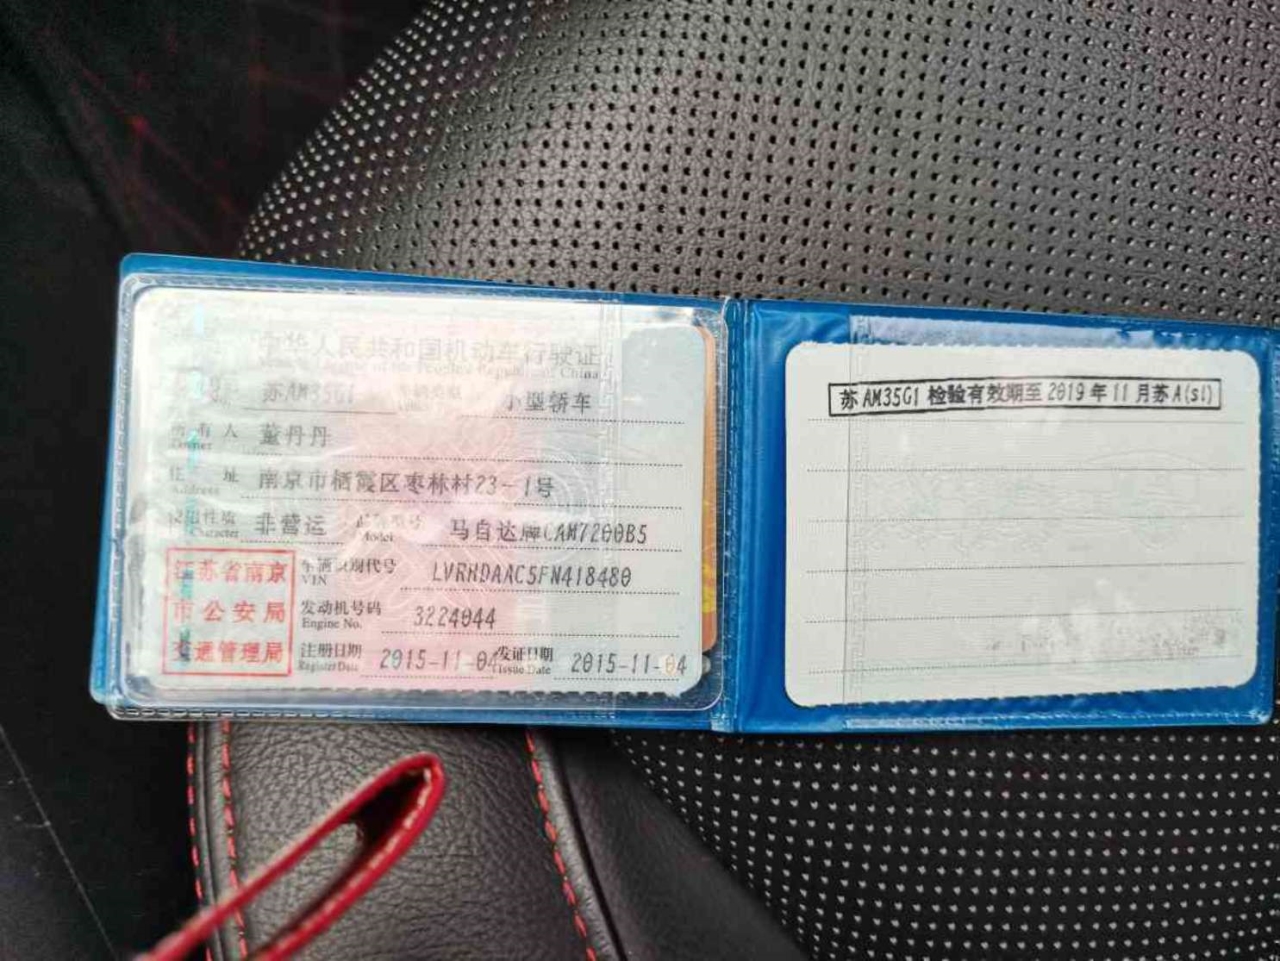 中华人民共和国机动车行驶证
of the People's Republic of China
苏AM35G1 车辆类型 小型轿车
所有人 董丹丹
Owner
住址 南京市栖霞区枣林村23-1号
Address
使用性质 非营运 品牌型号 马自达牌CAM7200B5
Character Model
江苏省南京
市公安局
交通管理局
车辆识别代号 LVRHDAAC5FN418480
VIN
发动机号码 3224044
Engine No.
注册日期 2015-11-04 发证日期 2015-11-04
Register Date Issue Date
苏AM35G1 检验有效期至2019年11月苏A(sl)